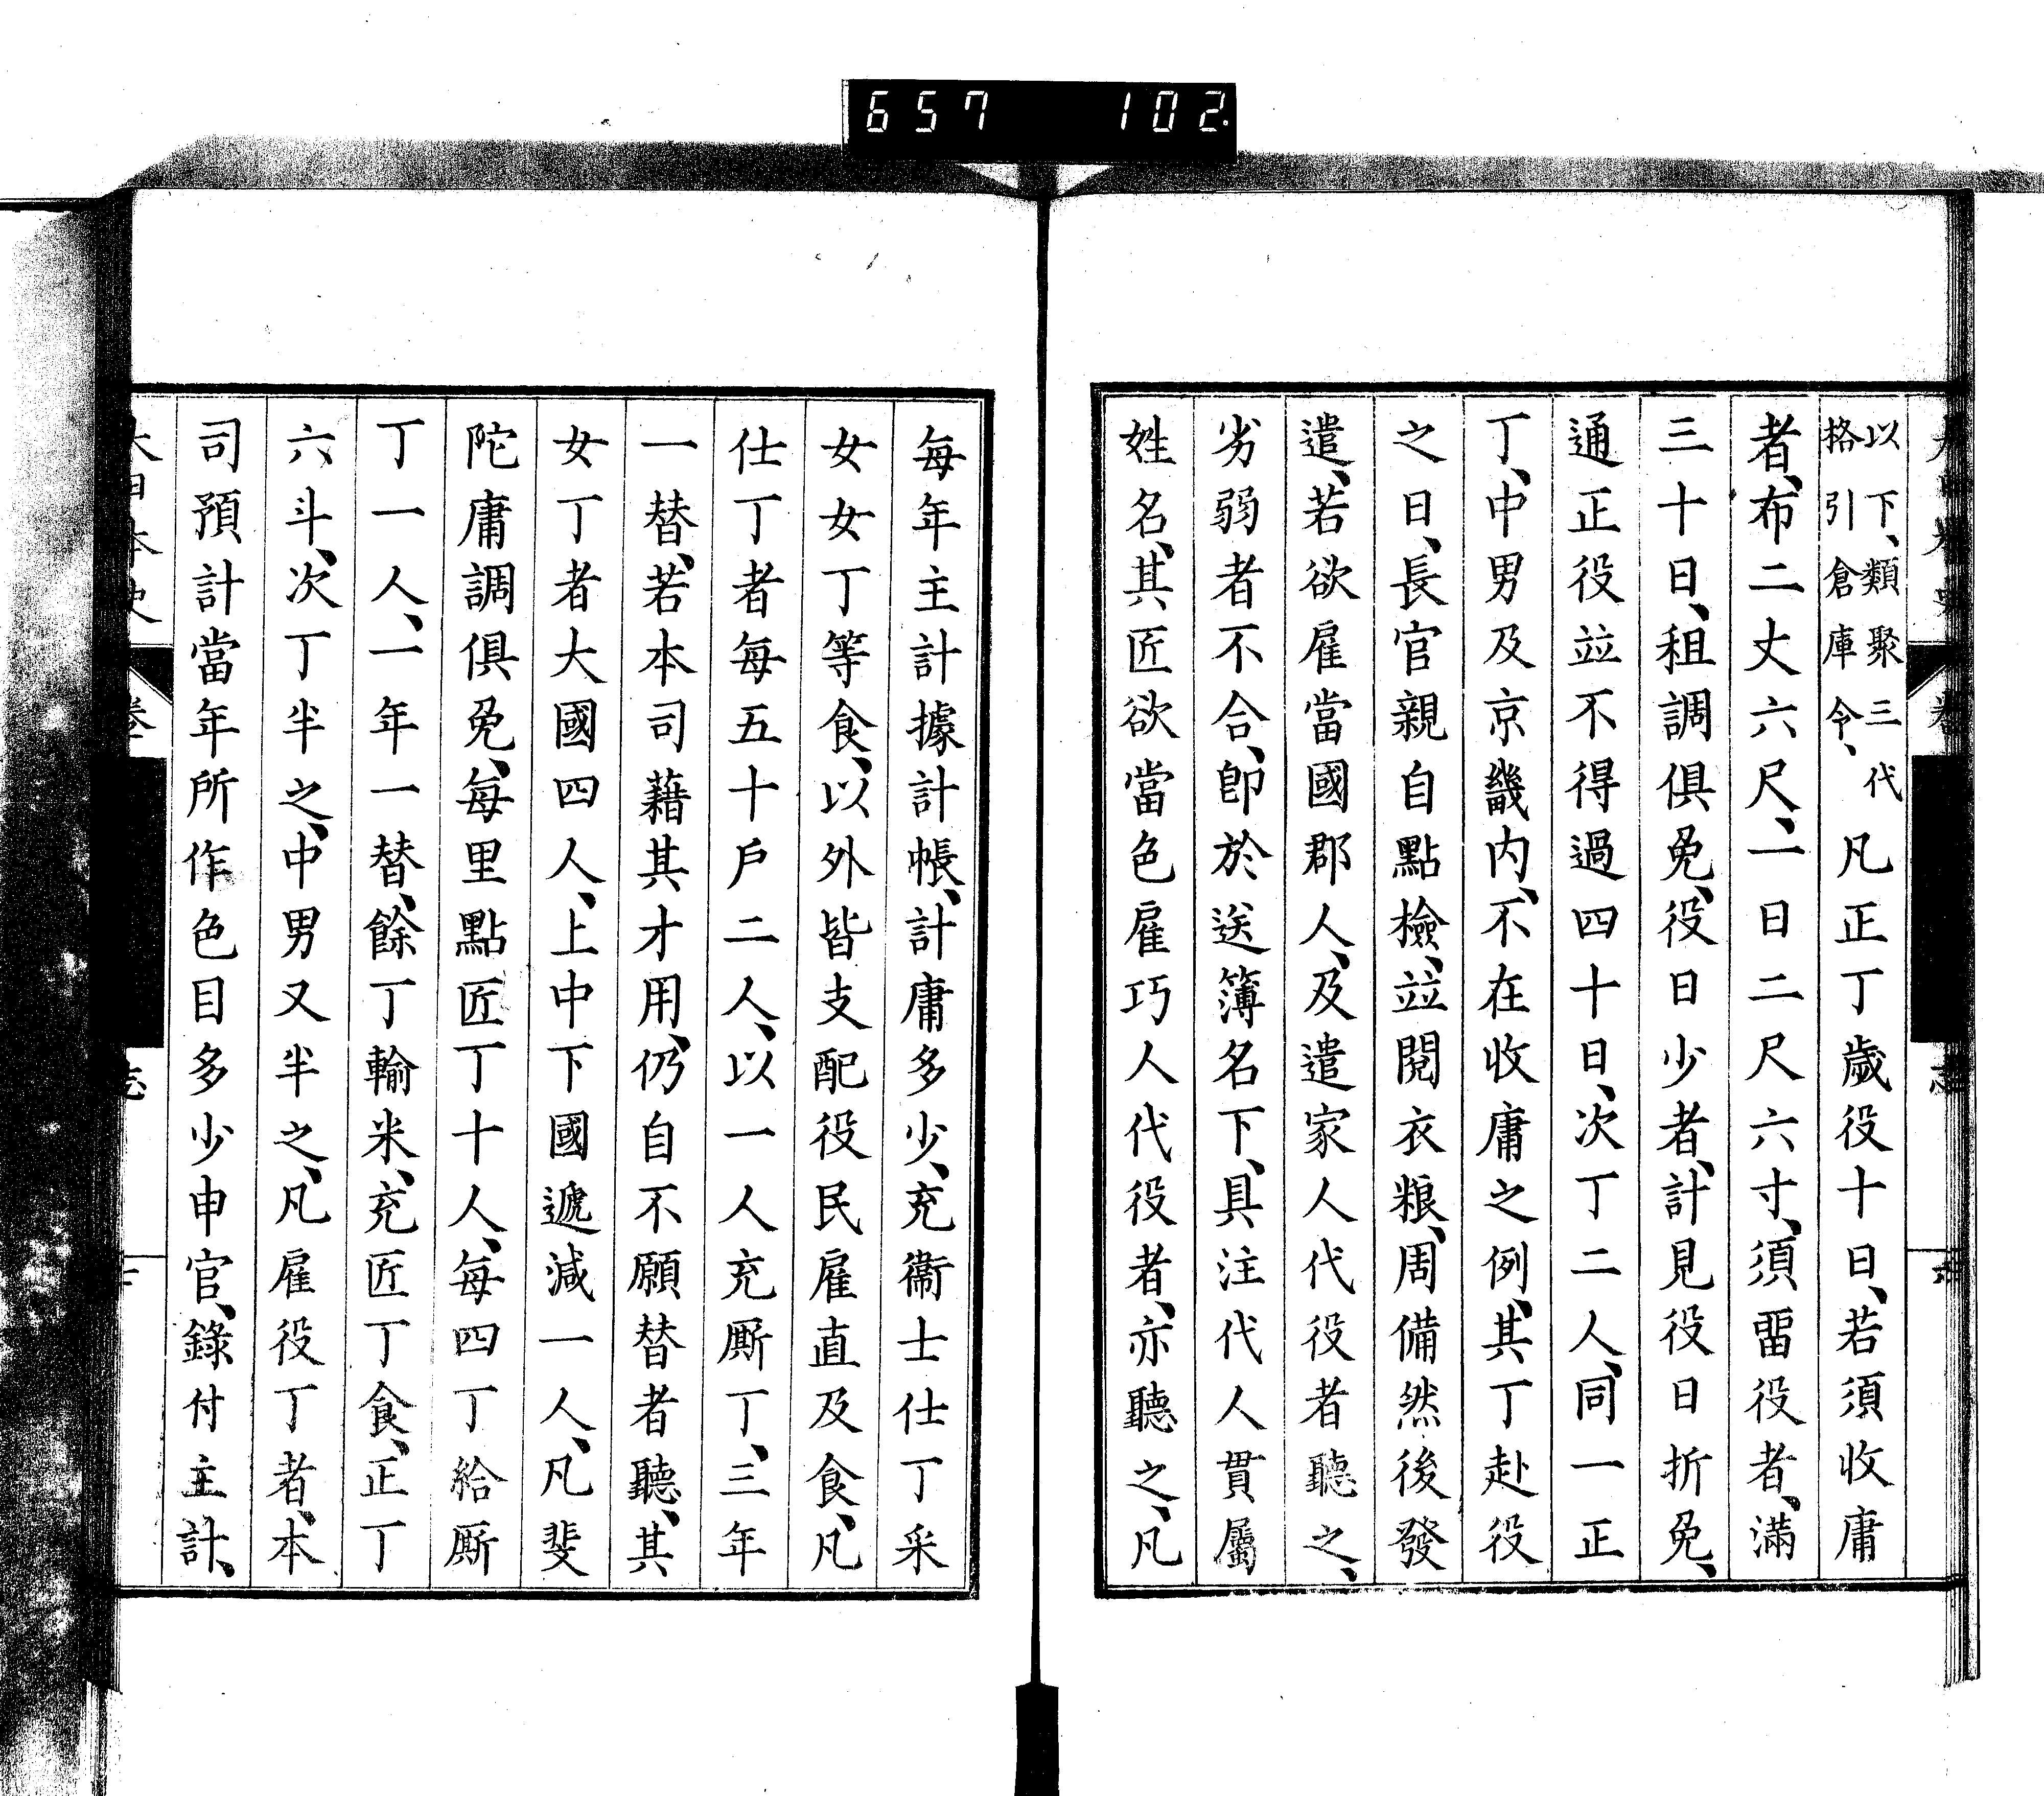 657 102
以下、類聚三代
格引倉庫令、
凡正丁歲役十日、若須收庸
者、布二丈六尺、一日二尺六寸、須畱役者、滿
三十日、租調俱免、役日少者、計見役日折免、
通正役竝不得過四十日、次丁二人、同一正
丁、中男及京畿內、不在收庸之例、其丁赴役
之日、長官親自點檢、竝閱衣粮、周備然後發
遣、若欲雇當國郡人、及遣家人代役者聽之、
劣弱者不合、卽於送簿名下、具注代人貫屬
姓名、其匠欲當色雇巧人代役者、亦聽之、凡
每年主計據計帳、計庸多少、充衞士仕丁采
女女丁等食、以外皆支配役民雇直及食、凡
仕丁者每五十戶二人、以一人充厮丁、三年
一替、若本司藉其才用、仍自不願替者聽、其
女丁者大國四人、上中下國遞減一人、凡斐
陀庸調俱免、每里點匠丁十人、每四丁給厮
丁一人、一年一替、餘丁輸米、充匠丁食、正丁
六斗、次丁半之、中男又半之、凡雇役丁者、本
司預計當年所作色目多少申官、錄付主計、
大日本史
卷
志